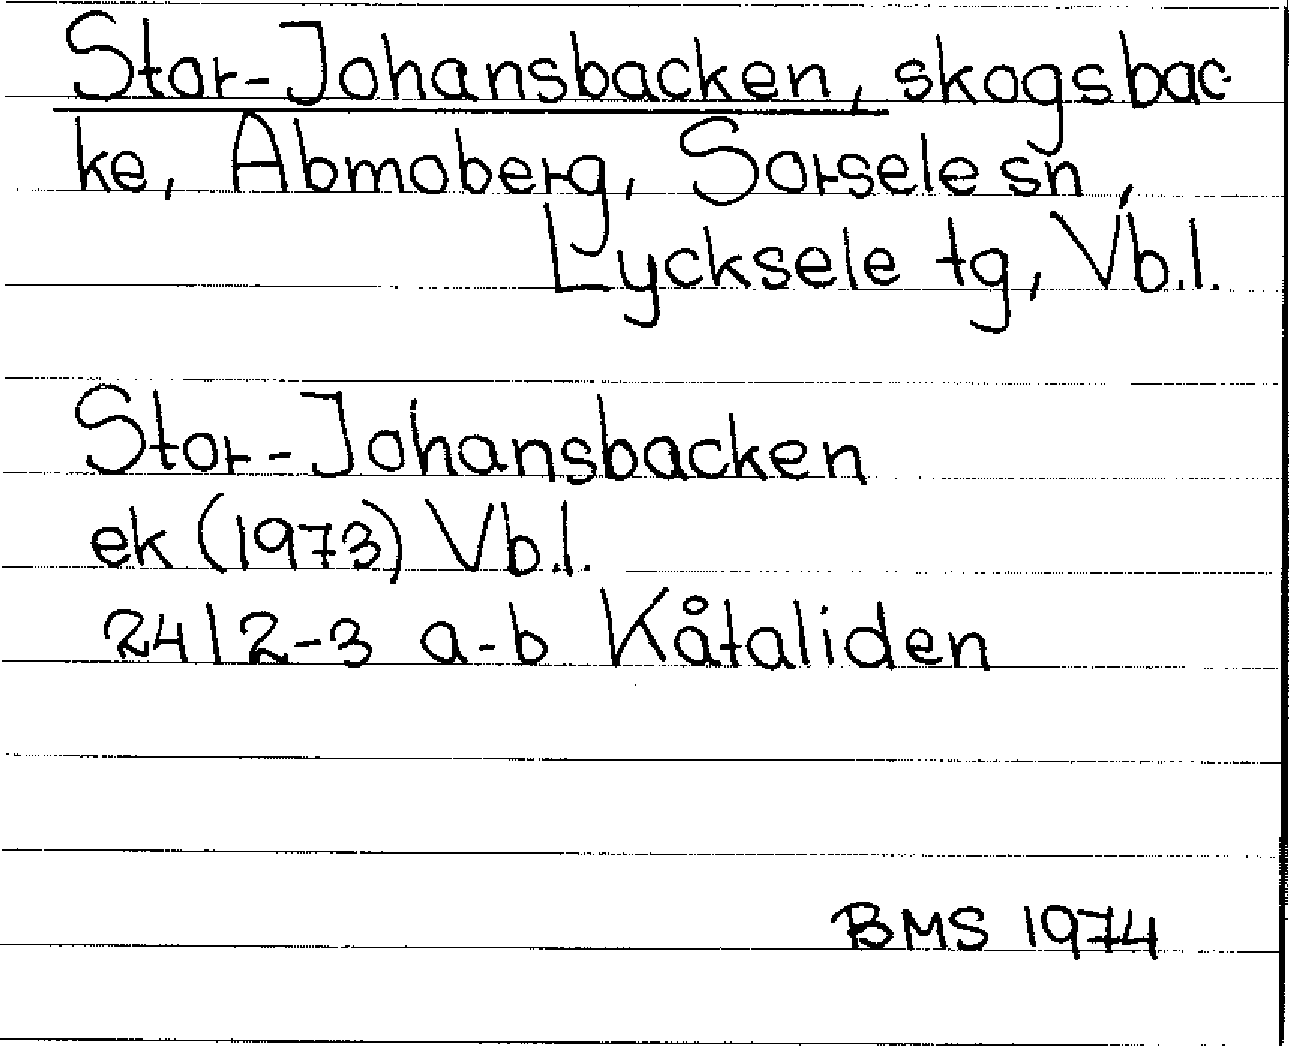 Stor-Johansbacken, skogsbac-
ke, Abmoberg, Sorsele sn,
Lycksele tg, Vb.l.
Stor-Johansbacken
ek (1973) Vb.l.
24 I 2-3 a-b Kåtaliden
BMS 1974